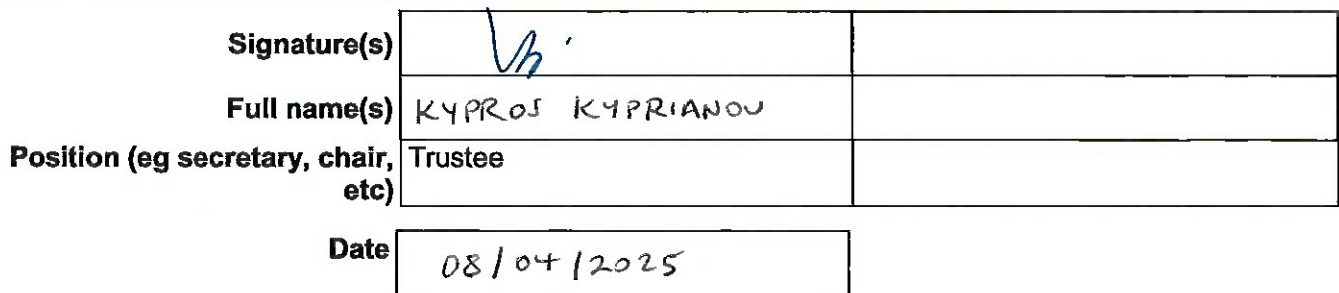 Signature(s)
Full name(s) KYPROS KYPRIANOU
Position (eg secretary, chair, Trustee
etc)
Date 08/04/2025